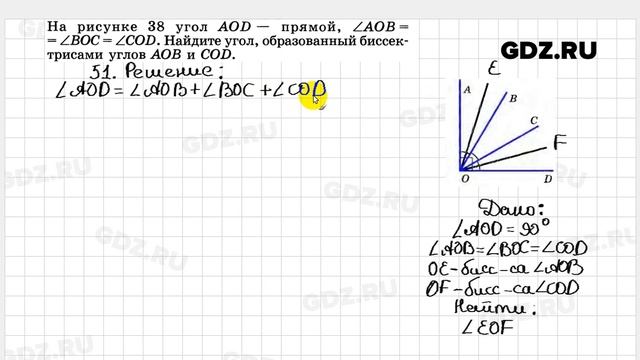 На рисунке 38 угол AOD — прямой, ∠AOB =
= ∠BOC = ∠COD. Найдите угол, образованный биссек-
трисами углов AOB и COD.
GDZ.RU
51. Решение:
∠AOD = ∠AOB + ∠BOC + ∠COD
E
A
B
C
F
O
D
Дано:
∠AOD = 90°
∠AOB = ∠BOC = ∠COD
OE - бисс-са ∠AOB
OF - бисс-са ∠COD
Найти:
∠EOF